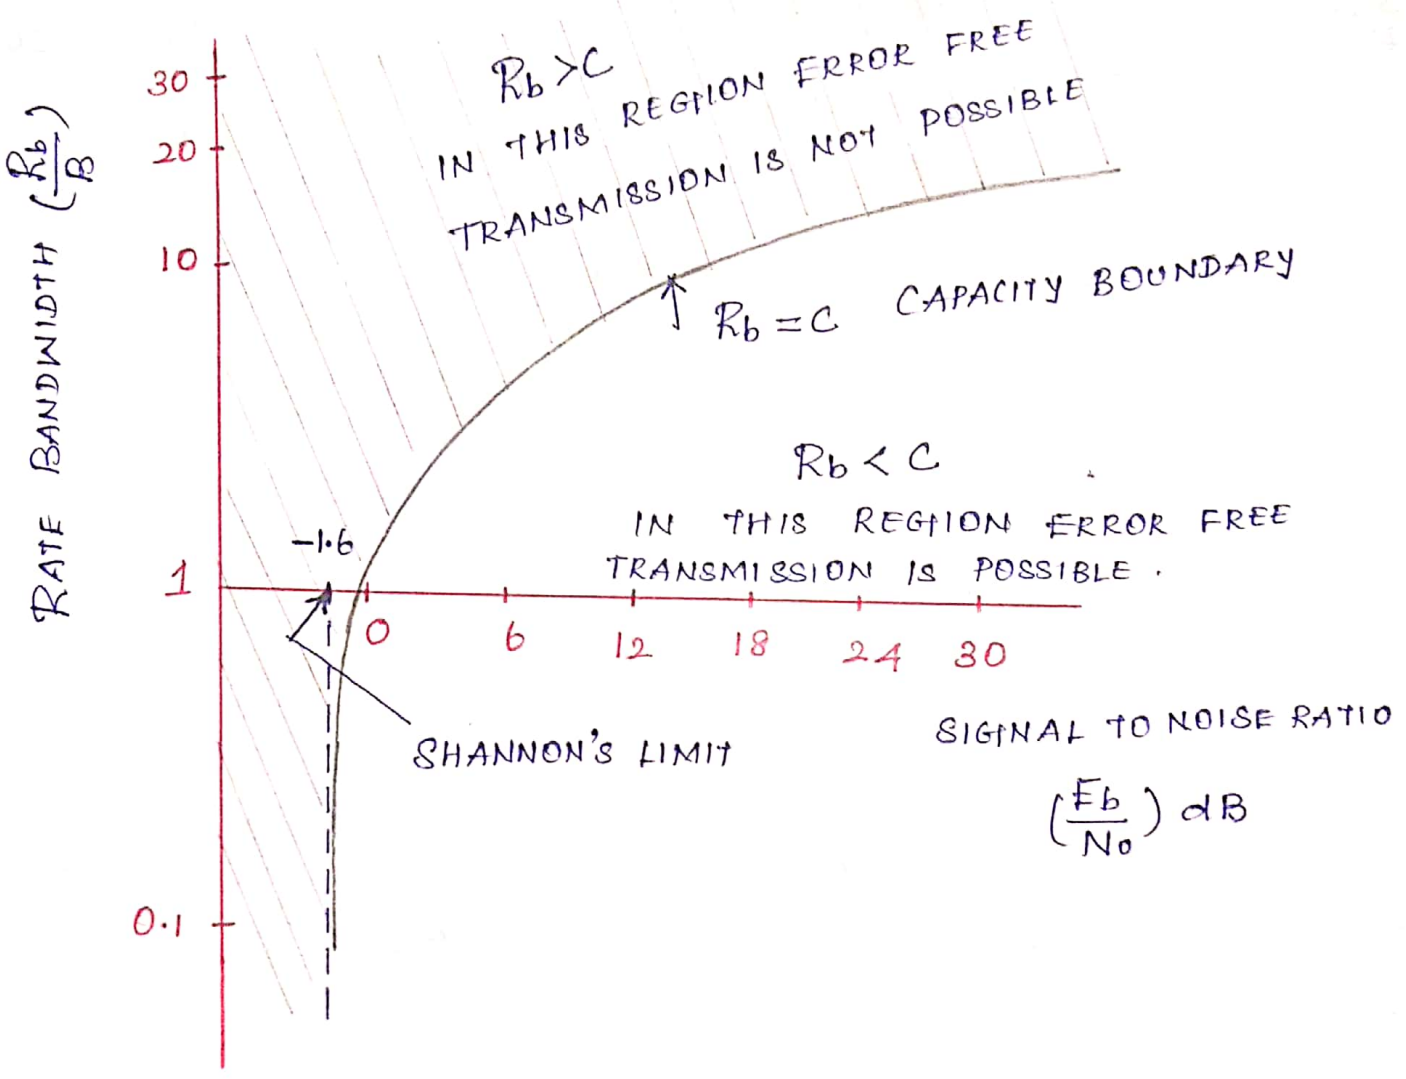 30
20
10
1
0.1
RATE BANDWIDTH (Rb/B)
Rb >C
IN THIS REGION ERROR FREE
TRANSMISSION IS NOT POSSIBLE
Rb = C CAPACITY BOUNDARY
Rb < C
IN THIS REGION ERROR FREE
TRANSMISSION IS POSSIBLE .
-1.6
0 6 12 18 24 30
SHANNON'S LIMIT
SIGNAL TO NOISE RATIO
(Eb/No) dB